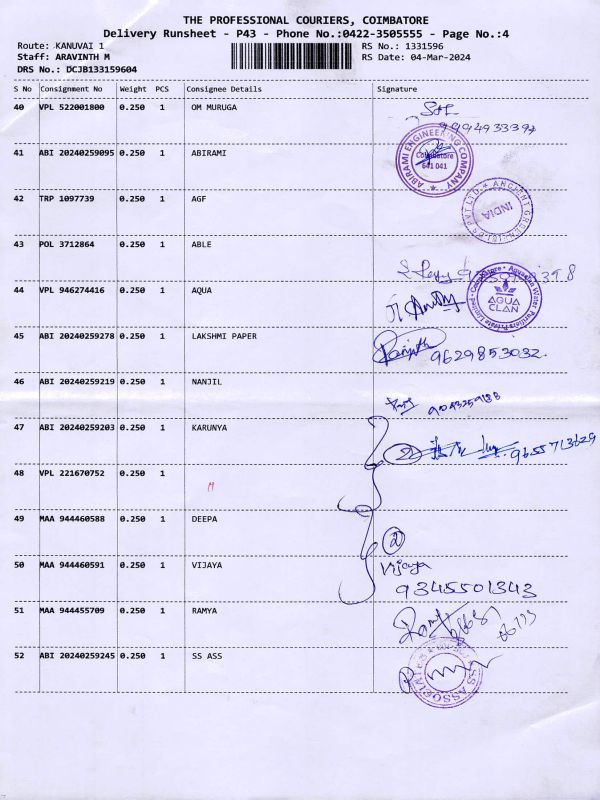 THE PROFESSIONAL COURIERS, COIMBATORE
Delivery Runsheet - P43 - Phone No.:0422-3505555 - Page No.:4
Route: KANUVAI 1
RS No.: 1331596
Staff: ARAVINTH M
RS Date: 04-Mar-2024
DRS No.: DCJB133159604
S No Consignment No Weight PCS Consignee Details Signature
40 VPL 522001800 0.250 1 OM MURUGA
41 ABI 20240259095 0.250 1 ABIRAMI
ABIRAMI ENGINEERING COMPANY
Coimbatore
641 041
42 TRP 1097739 0.250 1 AGF
INDIA
43 POL 3712864 0.250 1 ABLE
44 VPL 946274416 0.250 1 AQUA
AGUA
CLAN
45 ABI 20240259278 0.250 1 LAKSHMI PAPER
9629853032.
46 ABI 20240259219 0.250 1 NANJIL
9043259188
47 ABI 20240259203 0.250 1 KARUNYA
2 9655713629
48 VPL 221670752 0.250 1
49 MAA 944460588 0.250 1 DEEPA
2
50 MAA 944460591 0.250 1 VIJAYA
Vijaya
9345501343
51 MAA 944455709 0.250 1 RAMYA
52 ABI 20240259245 0.250 1 SS ASS